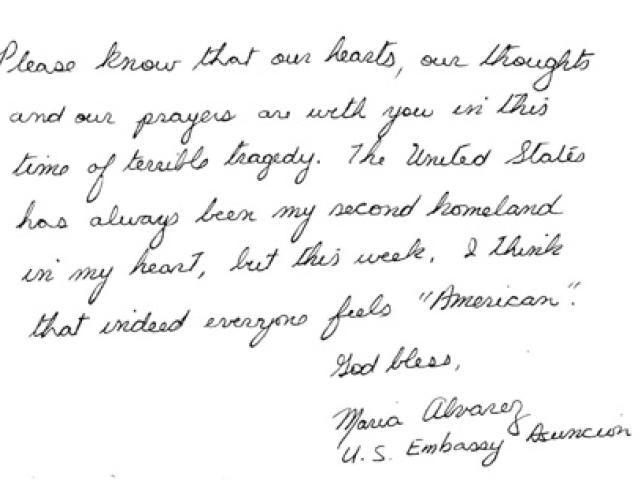 Please know that our hearts, our thoughts
and our prayers are with you in this
time of terrible tragedy. The United States
has always been my second homeland
in my heart, but this week, I think
that indeed everyone feels "American".
God bless,
Maria Alvarez
U.S. Embassy Asuncion